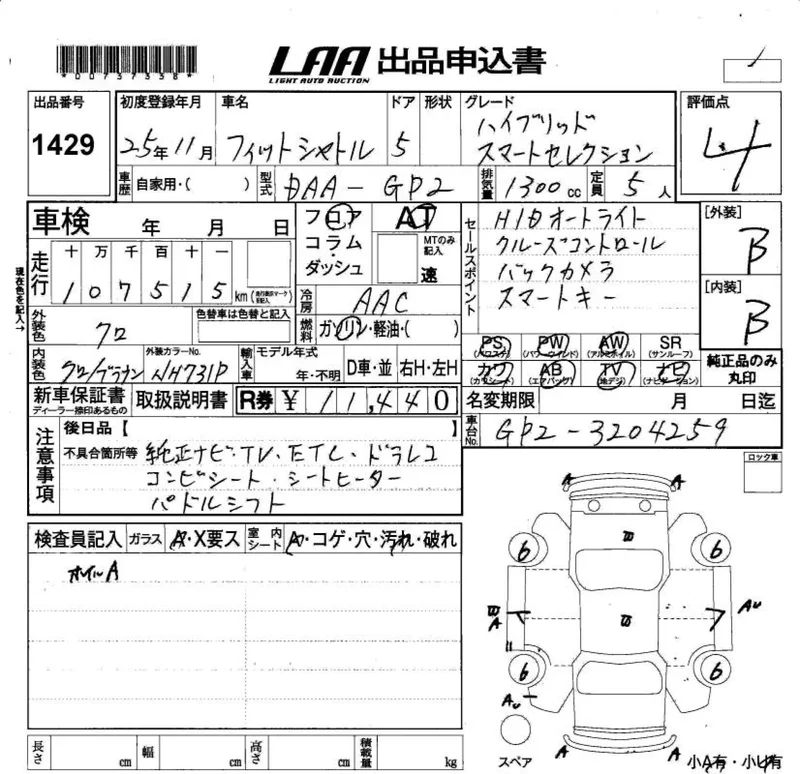 *00737338*
LAA 出品申込書
LIGHT AUTO AUCTION
出品番号 初度登録年月 車名 ドア 形状 グレード 評価点
1429 25年11月 フィットシャトル 5 ハイブリッド 4
スマートセレクション
車歴 自家用・( ) 型式 DAA-GP2 排気量 1300cc 定員 5人
車検 年 月 日 フロア AT セールスポイント HIDオートライト [外装]
走行 十 万 千 百 十 一 コラム・ MTのみ記入 クルーズコントロール B
ダッシュ 速 バックカメラ [内装]
107515 km (走行表示マーク記入) 冷房 AAC スマートキー B
現在色を記入→
外装色 クロ 色替車は色替と記入 燃料 ガソリン・軽油・( )
PS (パワステ) PW (パワーウインド) AW (アルミホイル) SR (サンルーフ)
カワ (カワシート) AB (エアバック) TV (地デジ) ナビ (ナビゲーション)
純正品のみ丸印
内装色 クロ/ 外装カラーNo. NH731P 輸入車 モデル年式 年・不明 D車・並 右H・左H
新車保証書 取扱説明書 R券 ¥ 11,440 名変期限 月 日迄
ディーラー捺印あるもの
車台No. GP2-3204259
注意事項 後日品【 】
不具合箇所等 純正ナビ・TV・ETC・ドラレコ
コンビシート・シートヒーター
パドルシフト
ロック車
検査員記入 ガラス A・X要ス 室内シート A・コゲ・穴・汚れ・破れ
ホイルA
A A
6 6
A AU
6 6
AU
A A
スペア 小A有・小U有
長さ cm 幅 cm 高さ cm 積載量 kg